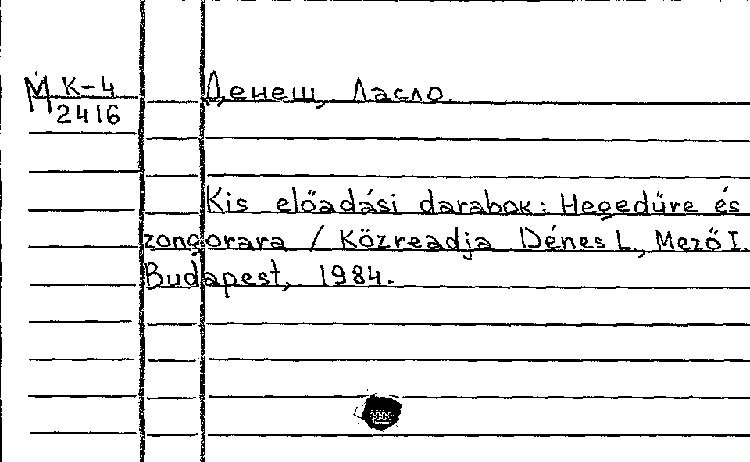 М К-4 Денеш, Ласло.
2416
Kis előadási darabok: Hegedűre és
zongorara / Közreadja Dénes L., Mező I.
Budapest, 1984.